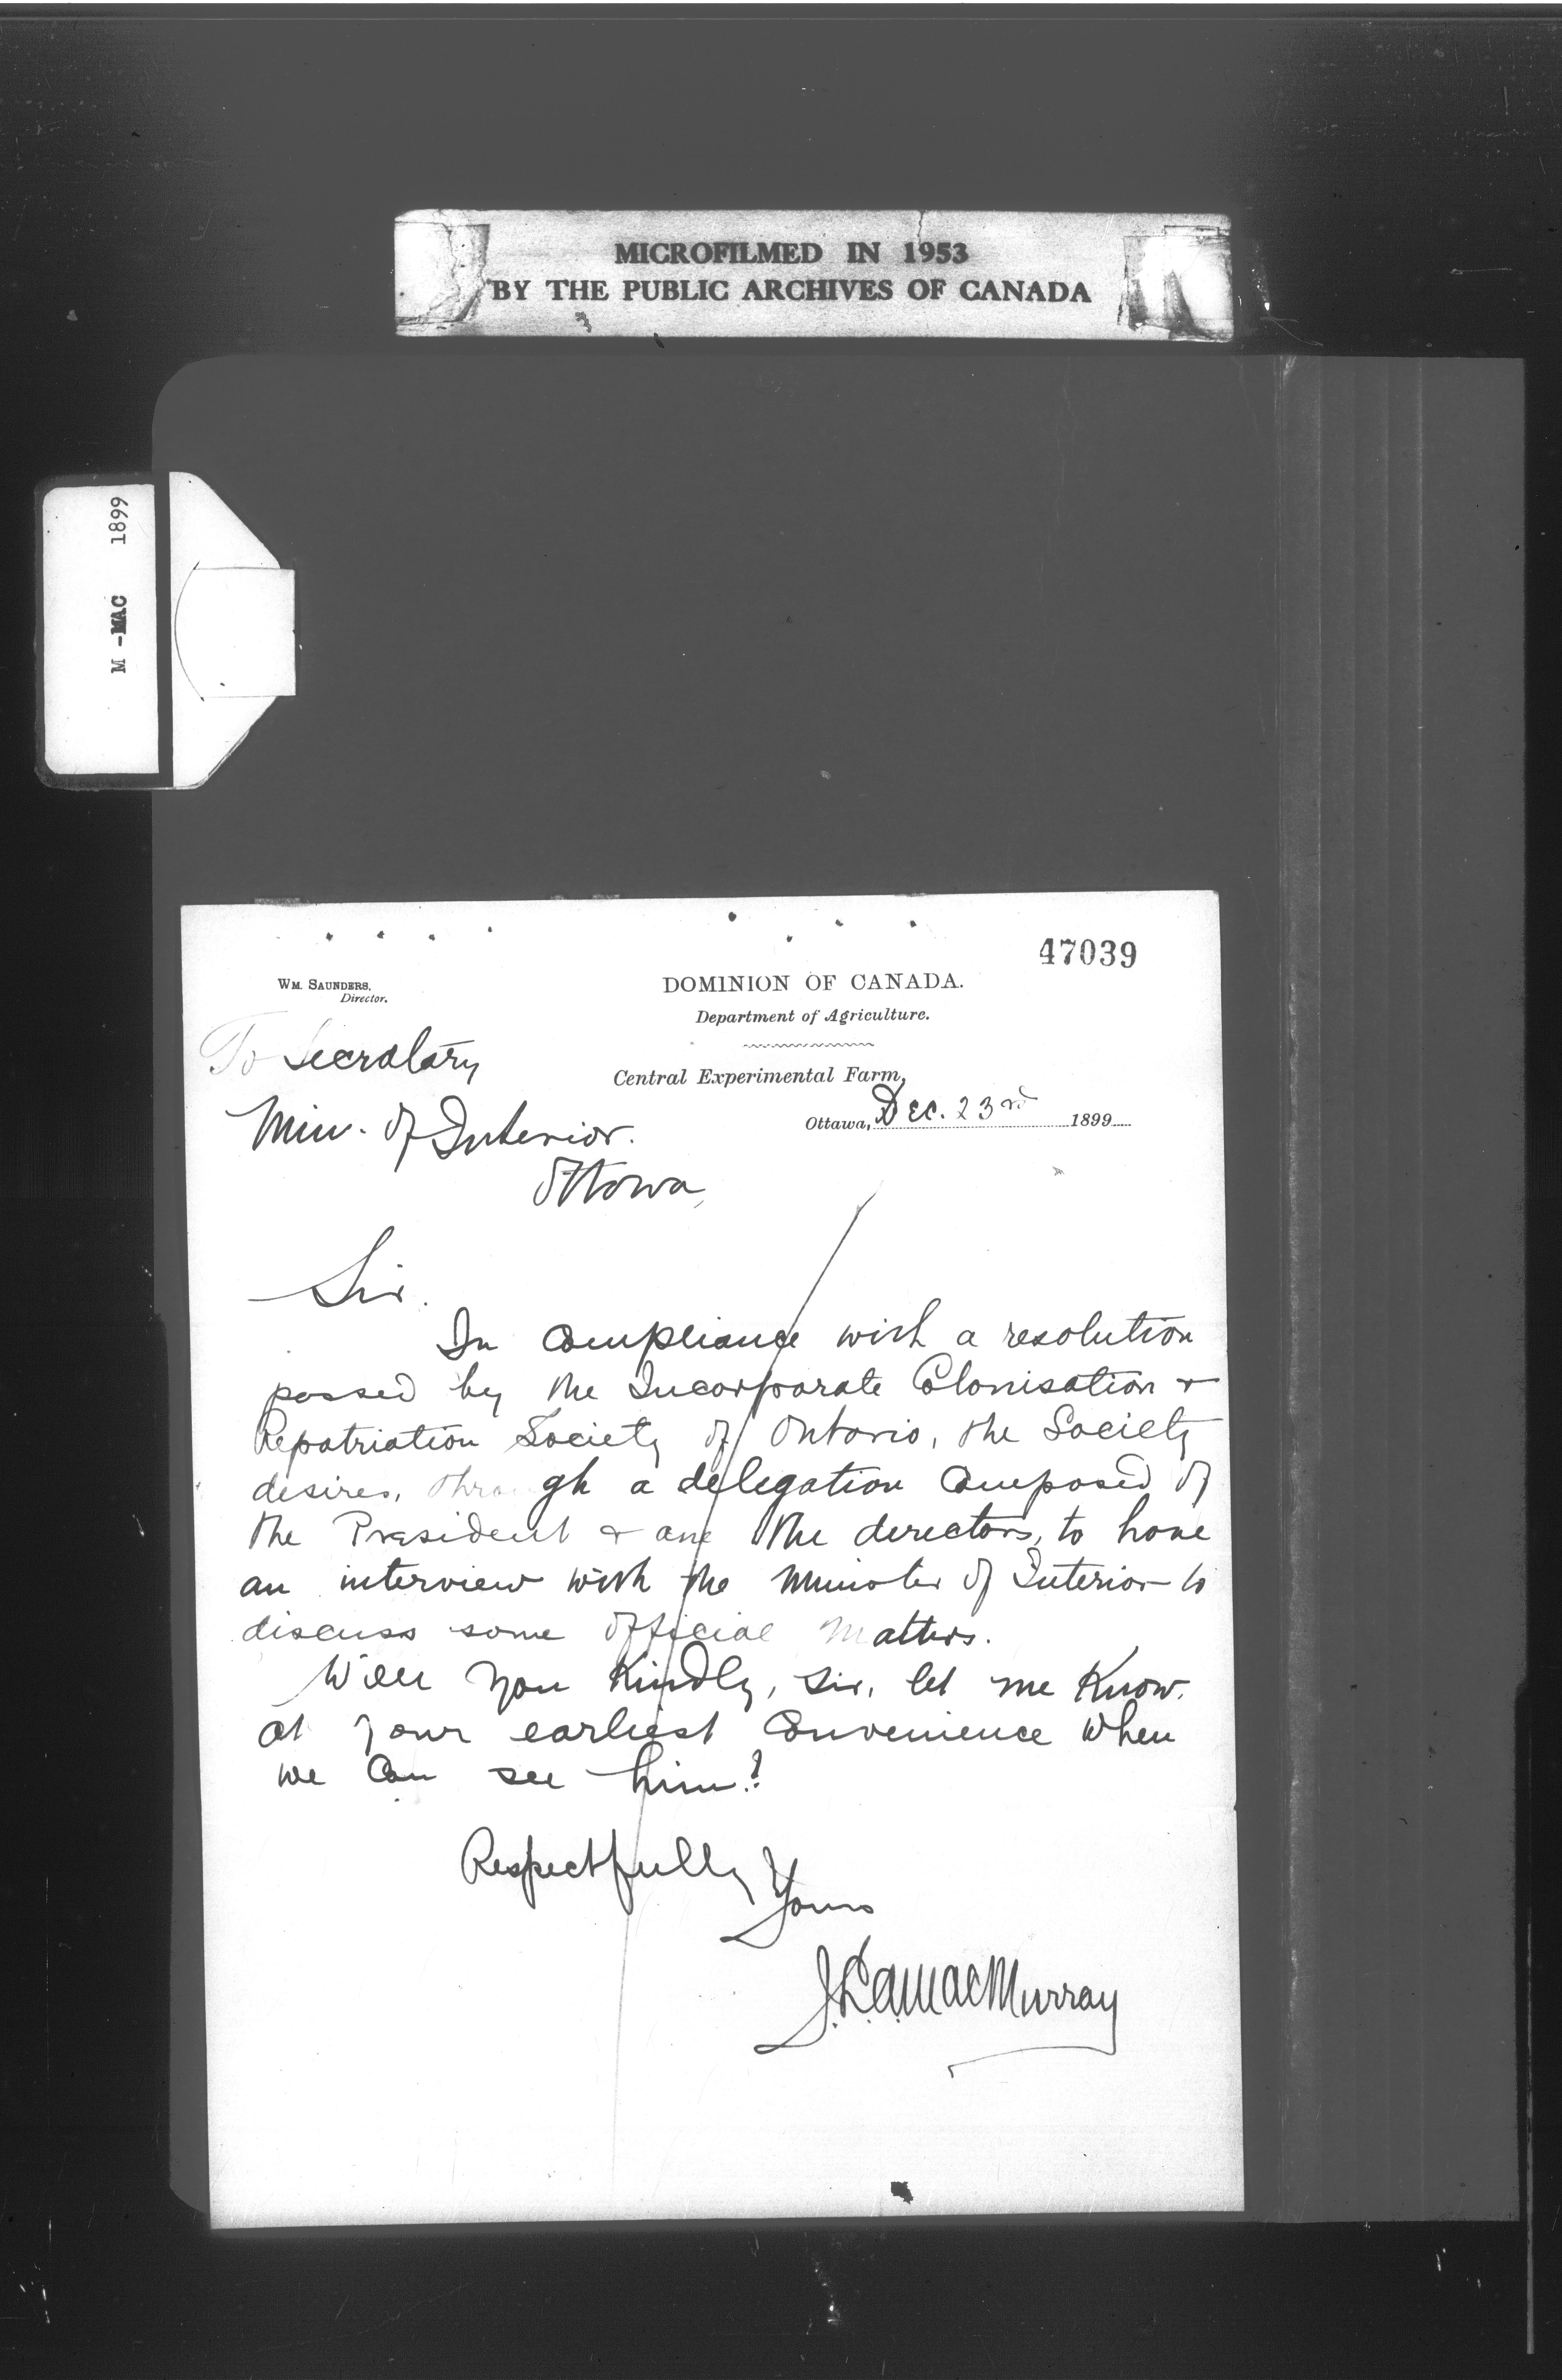 MICROFILMED IN 1953
BY THE PUBLIC ARCHIVES OF CANADA
M - MAC 1899
47039
WM. SAUNDERS,
Director.
DOMINION OF CANADA.
Department of Agriculture.
Central Experimental Farm,
Ottawa, Dec. 23rd 1899
To Secretary
Min. of Interior.
Ottowa,
Sir.
In compliance with a resolution
passed by the Incorporate Colonisation &
Repatriation Society of Ontario, the Society
desires, through a delegation composed of
the President & one the directors, to have
an interview with the Minister of Interior to
discuss some official matters.
Will you Kindly, Sir, let me Know.
at your earliest convenience when
we can see him?
Respectfully
Yours
MacMurray